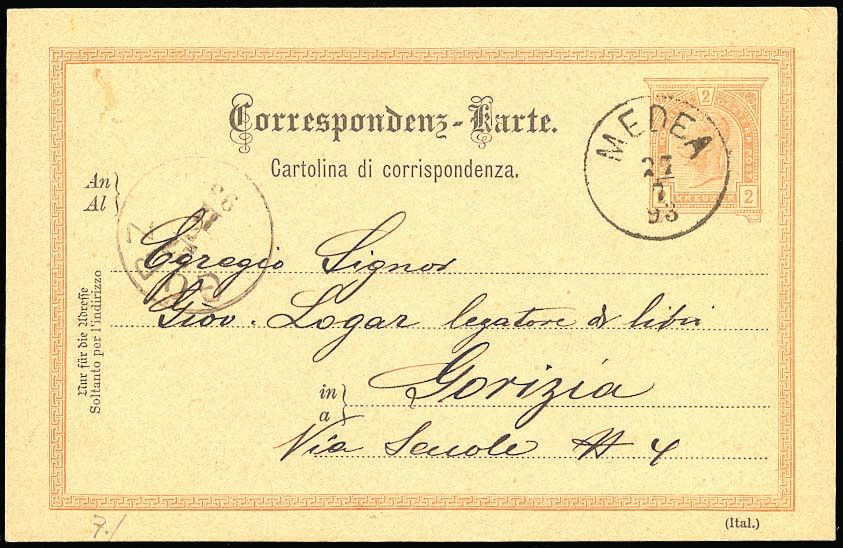 Correspondenz-Karte.
Cartolina di corrispondenza.
2
KREUZER
2
MEDEA
27
7
93
An
Al
Egregio Signor
Giov. Logar legatore di libri
in
a
Gorizia
Via Scuole # 4
Nur für die Adresse
Soltanto per l'indirizzo
7./
(Ital.)